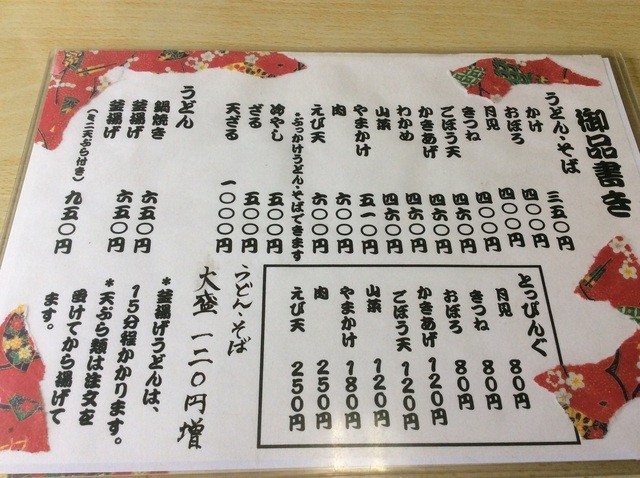 御品書き
うどん・そば
かけ 三五〇円
おぼろ 四〇〇円
月見 四〇〇円
きつね 四〇〇円
ごぼう天 四六〇円
かきあげ 四六〇円
わかめ 四六〇円
山菜 四六〇円
やまかけ 五一〇円
肉 六〇〇円
えび天 六〇〇円
*ぶっかけうどん・そばできます
冷やし 五〇〇円
ざる 五〇〇円
天ざる 一〇〇〇円
うどん
鍋焼き 六五〇円
釜揚げ 六五〇円
釜揚げ
(ミニ天ぷら付き) 九五〇円
とっぴんぐ
月見 80円
きつね 80円
おぼろ 80円
かきあげ 120円
ごぼう天 120円
山菜 120円
やまかけ 180円
肉 250円
えび天 250円
うどん・そば
大盛 一二〇円増
*釜揚げうどんは、
15分程かかります。
*天ぷら類は注文を
受けてから揚げて
ます。